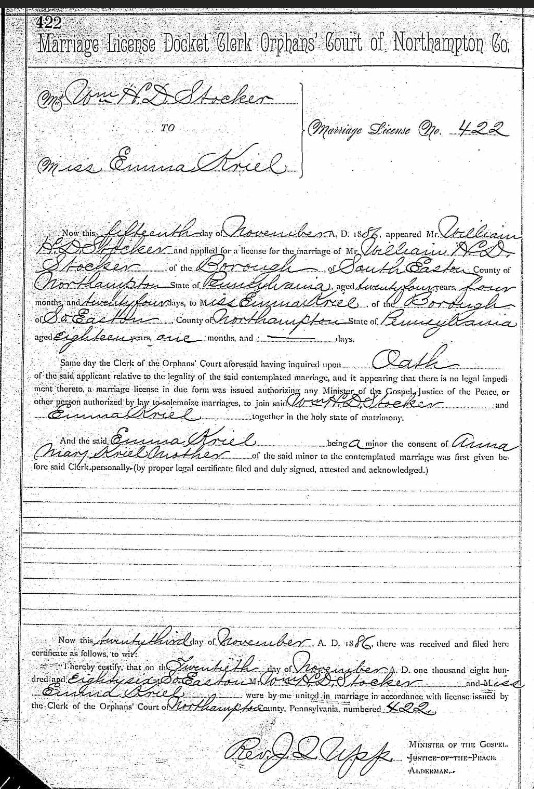 422
Marriage License Docket Clerk Orphans' Court of Northampton Co.
Mr. Wm H. D. Stocker
TO
Marriage License No. 422
Miss Emma Kriel
Now this fifteenth day of November A. D. 1886, appeared Mr. William
H. D. Stocker and applied for a license for the marriage of Mr. William H. D.
Stocker of the Borough of South Easton County of
Northampton State of Pennsylvania, aged twenty four years, four
months, and twenty four days, to Miss Emma Kriel of the Borough
of So Easton County of Northampton State of Pennsylvania
aged eighteen years, one months, and days.
Same day the Clerk of the Orphans' Court aforesaid having inquired upon Oath
of the said applicant relative to the legality of the said contemplated marriage, and it appearing that there is no legal impedi
ment thereto, a marriage license in due form was issued authorizing any Minister of the Gospel, Justice of the Peace, or
other person authorized by law to solemnize marriages, to join said Wm H. D. Stocker and
Emma Kriel together in the holy state of matrimony.
And the said Emma Kriel being a minor the consent of Anna
Mary Kriel Mother of the said minor to the contemplated marriage was first given be-
fore said Clerk, personally (by proper legal certificate filed and duly signed, attested and acknowledged.)
Now this twenty third day of November, A. D. 1886, there was received and filed here
certificate as follows, to wit:
I hereby certify, that on the Twentieth day of November A. D. one thousand eight hun-
dred and Eighty six So Easton Wm H. D. Stocker and Miss
Emma Kriel were by me united in marriage in accordance with license issued by
the Clerk of the Orphans' Court of Northampton county, Pennsylvania, numbered 422.
Rev. J. Q. Upp
MINISTER OF THE GOSPEL.
JUSTICE OF THE PEACE.
ALDERMAN.